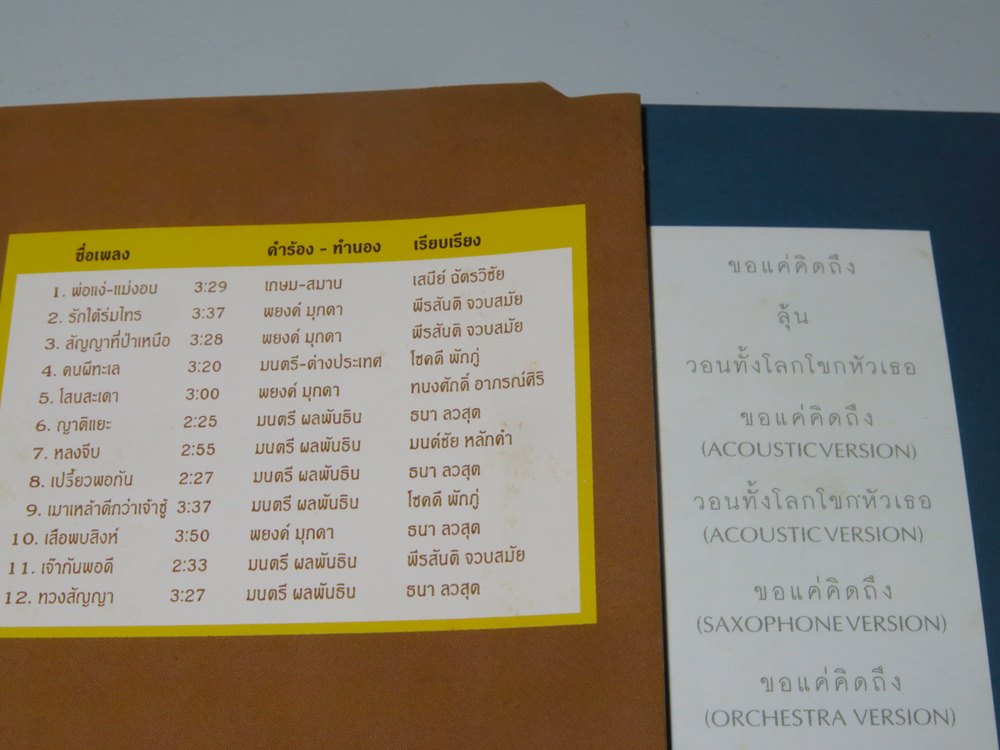 ชื่อเพลง คำร้อง - ทำนอง เรียบเรียง
1. พ่อแง่-แม่งอน 3:29 เกษม-สมาน เสนีย์ ฉัตรวิชัย
2. รักใต้ร่มไทร 3:37 พยงค์ มุกดา พีรสันติ จวบสมัย
3. สัญญาที่ป่าเหนือ 3:28 พยงค์ มุกดา พีรสันติ จวบสมัย
4. คนผีทะเล 3:20 มนตรี-ต่างประเทศ โชคดี พักภู่
5. โสนสะเดา 3:00 พยงค์ มุกดา ทนงศักดิ์ อาภรณ์ศิริ
6. ญาติแยะ 2:25 มนตรี ผลพันธิน ธนา ลวสุต
7. หลงจีบ 2:55 มนตรี ผลพันธิน มนต์ชัย หลักคำ
8. เปรี้ยวพอกัน 2:27 มนตรี ผลพันธิน ธนา ลวสุต
9. เมาเหล้าดีกว่าเจ้าชู้ 3:37 มนตรี ผลพันธิน โชคดี พักภู่
10. เสือพบสิงห์ 3:50 พยงค์ มุกดา ธนา ลวสุต
11. เจ๊ากันพอดี 2:33 มนตรี ผลพันธิน พีรสันติ จวบสมัย
12. ทวงสัญญา 3:27 มนตรี ผลพันธิน ธนา ลวสุต
ขอแค่คิดถึง
ลุ้น
วอนทั้งโลกโขกหัวเธอ
ขอแค่คิดถึง
(ACOUSTIC VERSION)
วอนทั้งโลกโขกหัวเธอ
(ACOUSTIC VERSION)
ขอแค่คิดถึง
(SAXOPHONE VERSION)
ขอแค่คิดถึง
(ORCHESTRA VERSION)